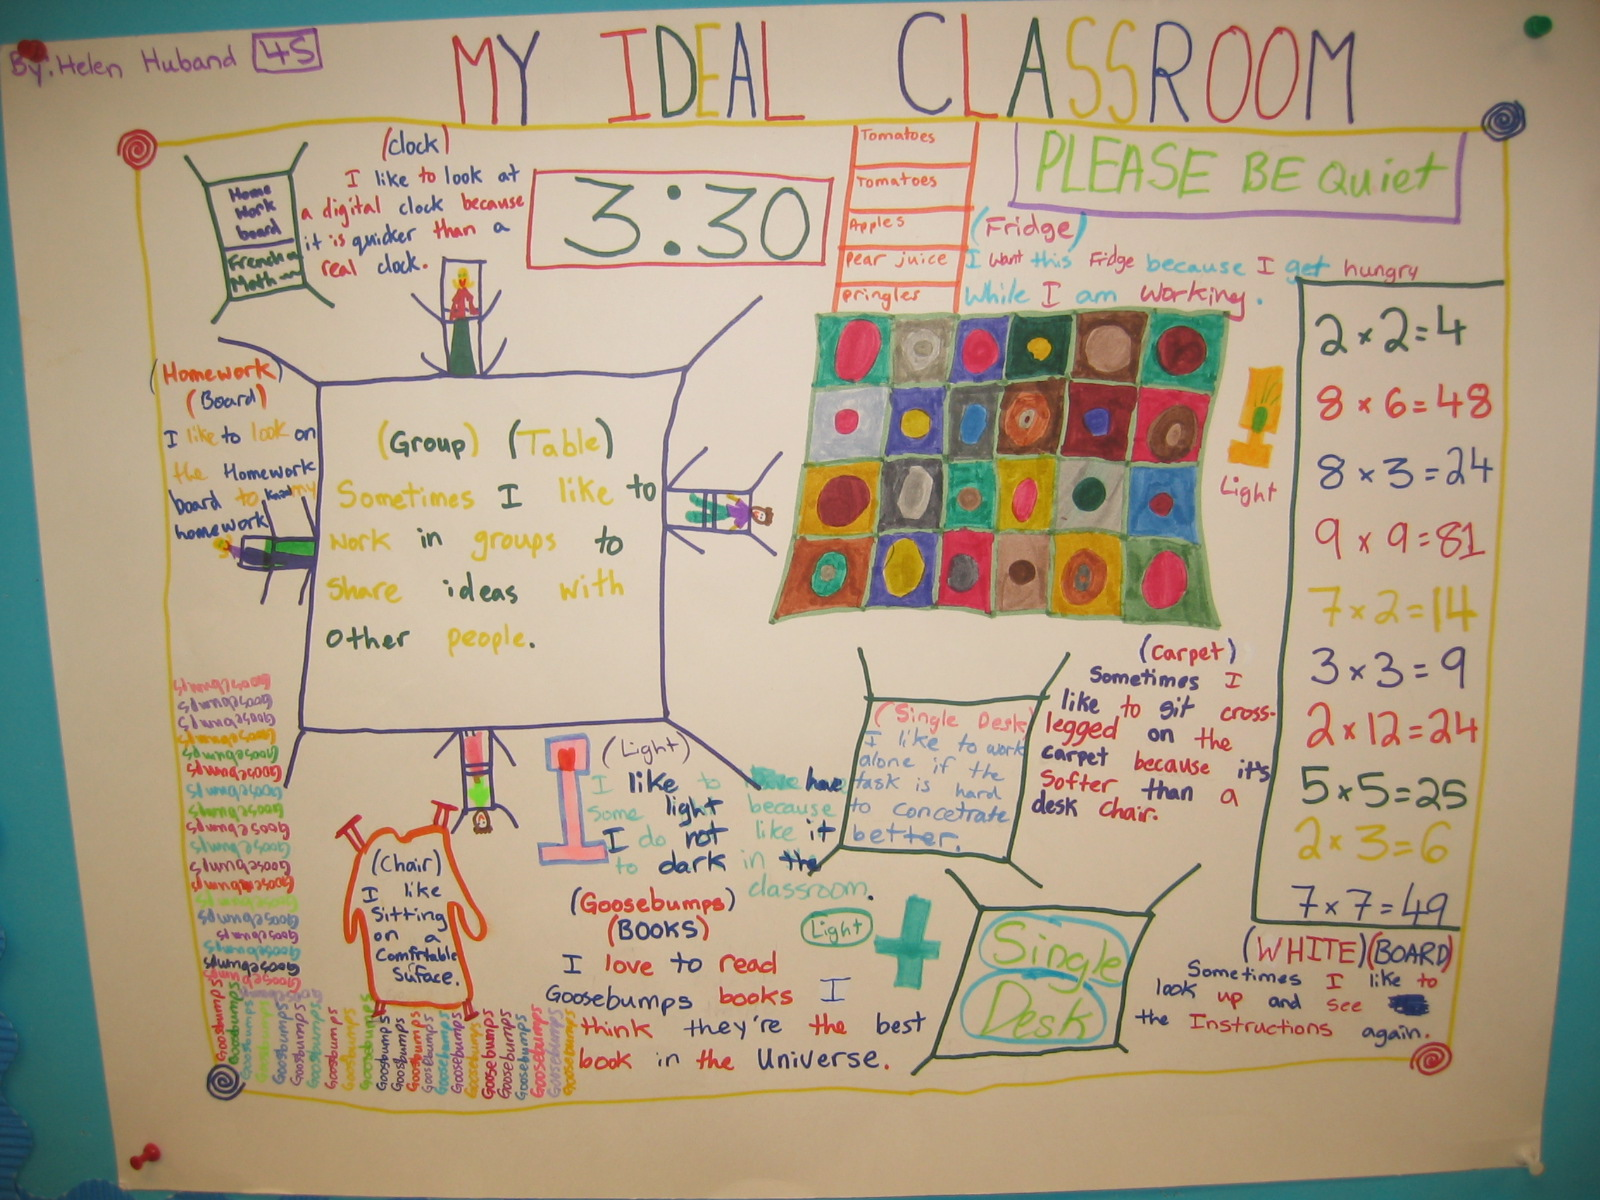 By: Helen Huband 4S
MY IDEAL CLASSROOM
Home
work
board
French
Math
(clock)
I like to look at
a digital clock because
it is quicker than a
real clock.
3:30
Tomatoes
Tomatoes
Apples
pear juice
pringles
PLEASE BE Quiet
(Fridge)
I want this Fridge because I get hungry
while I am working.
(Homework)
(Board)
I like to look on
the Homework
board to know my
homework
(Group) (Table)
Sometimes I like to
work in groups to
share ideas with
other people.
Light
2 x 2 = 4
8 x 6 = 48
8 x 3 = 24
9 x 9 = 81
7 x 2 = 14
3 x 3 = 9
2 x 12 = 24
5 x 5 = 25
2 x 3 = 6
7 x 7 = 49
(Carpet)
Sometimes I
like to sit cross-
legged on the
carpet because it's
softer than a
desk chair.
(Single Desk)
I like to work
alone if the
task is hard
to concetrate
better.
(Light)
I like to have
some light because
I do not like it
to dark in the
classroom.
(Chair)
I like
sitting
on a
Comfrtable
Suface.
(Goosebumps)
(BOOKS)
I love to read
Goosebumps books I
think they're the best
book in the Universe.
Light
Single
Desk
(WHITE)(BOARD)
Sometimes I like to
look up and see
the Instructions again.
Goosebumps
Goosebumps
Goosebumps
Goosebumps
Goosebumps
Goosebumps
Goosebumps
Goosebumps
Goosebumps
Goosebumps
Goosebumps
Goosebumps
Goosebumps
Goosebumps
Goosebumps
Goosebumps
Goosebumps
Goosebumps
Goosebumps
Goosebumps
Goosebumps
Goosebumps
Goosebumps
Goosebumps
Goosebumps
Goosebumps
Goosebumps
Goosebumps
Goosebumps
Goosebumps
Goosebumps
Goosebumps
Goosebumps
Goosebumps
Goosebumps
Goosebumps